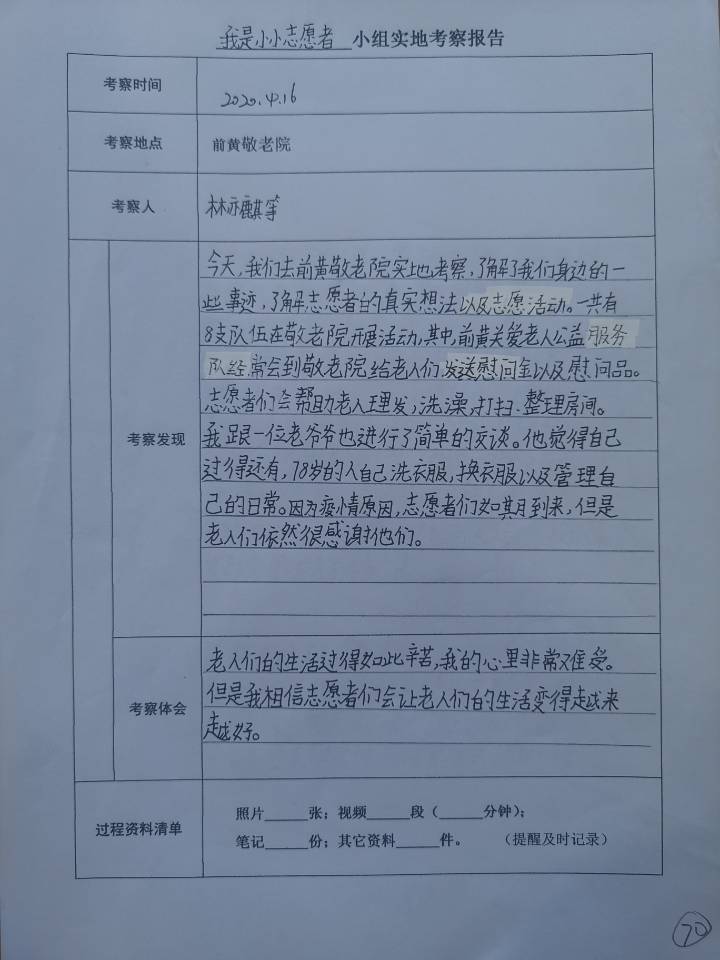 我是小小志愿者 小组实地考察报告
考察时间
2020.4.16
考察地点
前黄敬老院
考察人
林亦麒等
考察发现
今天,我们去前黄敬老院实地考察,了解了我们身边的一
些事迹,了解志愿者的真实想法以及志愿活动。一共有
8支队伍在敬老院开展活动,其中,前黄关爱老人公益服务
队经常会到敬老院给老人们发送慰问金以及慰问品。
志愿者们会帮助老人理发,洗澡,打扫、整理房间。
我跟一位老爷爷也进行了简单的交谈。他觉得自己
过得还有,78岁的人自己洗衣服,换衣服以及管理自
己的日常。因为疫情原因,志愿者们如期到来,但是
老人们依然很感谢他们。
考察体会
老人们的生活过得如此辛苦,我的心里非常难受。
但是我相信志愿者们会让老人们的生活变得越来
越好。
过程资料清单
照片______张;视频______段(______分钟);
笔记______份;其它资料______件。 (提醒及时记录)
70